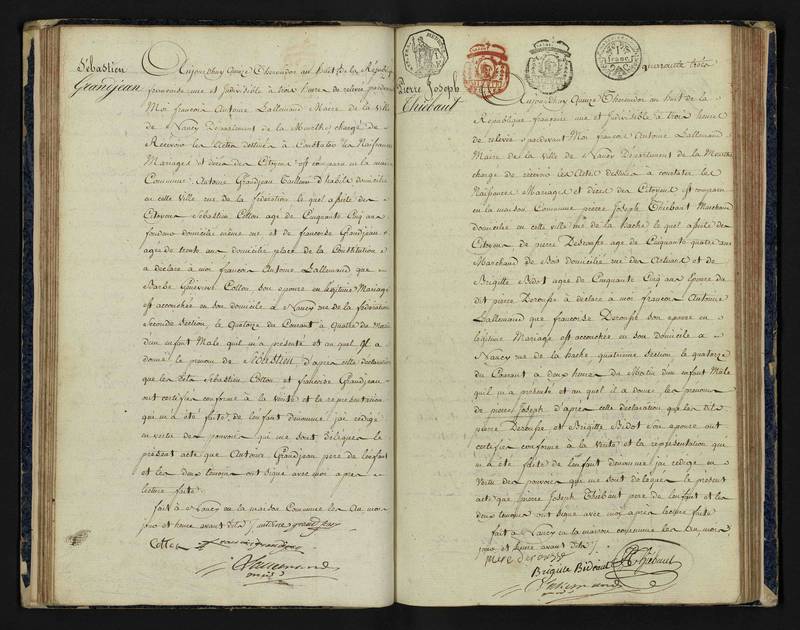 Sébastien
Grandjean
Aujourdhuy Quinze Thermidor an huit de la Républiq
francoise une et Indivisible à trois heures de relevée pardevant
Moi francois Antoine Lallemand Maire de la Ville
de Nancy Département de la Meurthe chargé de
Recevoir les Actes destinés à Constater les Naissances
Mariages et décès des Citoyens est comparu en la maison
Commune Antoine Grandjean Tailleur d'habits domicilié
en cette ville rue de la fédération le quel assisté des
Citoyens Sébastien Cotton agé de Cinquante Cinq ans
domicilié même rue et de francoise Grandjean
agée de trente ans domiciliée place de la Constitution
a déclaré à moi francois Antoine Lallemand que
Barbe Cotton son epouse en légitime Mariage
est accouchée en son domicile à Nancy rue de la fédération
Seconde Section, le Quatorze du Courant à Quatre du Matin
d'un enfant Male quil m'a présenté et au quel il a
donné le prénom de Sébastien d'après cette déclaration
que les dits Sébastien Cotton et francoise Grandjean
ont certifiés conforme à la Vérité et la représentation
qui m'a été faite de lenfant dénommé jai rédigé
en vertu des pouvoirs qui me sont délégués le
présent acte que Antoine Grandjean pere de lenfant
et les deux temoins ont signé avec moi apres
lecture faite.
fait à Nancy en la maison Commune les an mois
jour et heure avant dits
Cotton
Lallemand
quarante trois
Pierre Joseph
Thiebaut
Aujourdhuy Quinze Thermidor an huit de la
République francoise une et indivisible à trois heures
de relevée pardevant Moi francois Antoine Lallemand
Maire de la ville de Nancy Département de la Meurthe
chargé de recevoir les Actes destinés à constater les
Naissances Mariages et décès des Citoyens est comparu
en la maison Commune pierre Joseph Thiebaut Marchand
domicilié en cette ville rue de la hache le quel assisté des
Citoyens de pierre Deroupe agé de Cinquante quatre ans
Marchand de Bois domicilié rue des Artisans et de
Brigitte Bidot agée de Cinquante Cinq ans Epouse du
dit pierre Deroupe à déclaré à moi francois Antoine
Lallemand que francoise Deroupe son epouse en
légitime Mariage est accouchée en son domicile à
Nancy rue de la hache quatrieme section le quatorze
du Courant a deux heures du Matin d'un enfant Male
quil m'a présenté et au quel il a donné les prénoms
de pierre Joseph d'après cette déclaration que les dits
pierre Deroupe et Brigitte Bidot son epouse ont
certifiés conforme à la Vérité et la représentation qui
m'a été faite de lenfant dénommé jai rédigé en
Vertu des pouvoirs qui me sont délégués le présent
acte que pierre Joseph Thiebaut pere de lenfant et les
deux temoins ont signé avec moi après lecture faite
fait à Nancy en la maison commune les an mois
jour et heure avant dits
Brigitte Bidot
Thiebaut
Lallemand